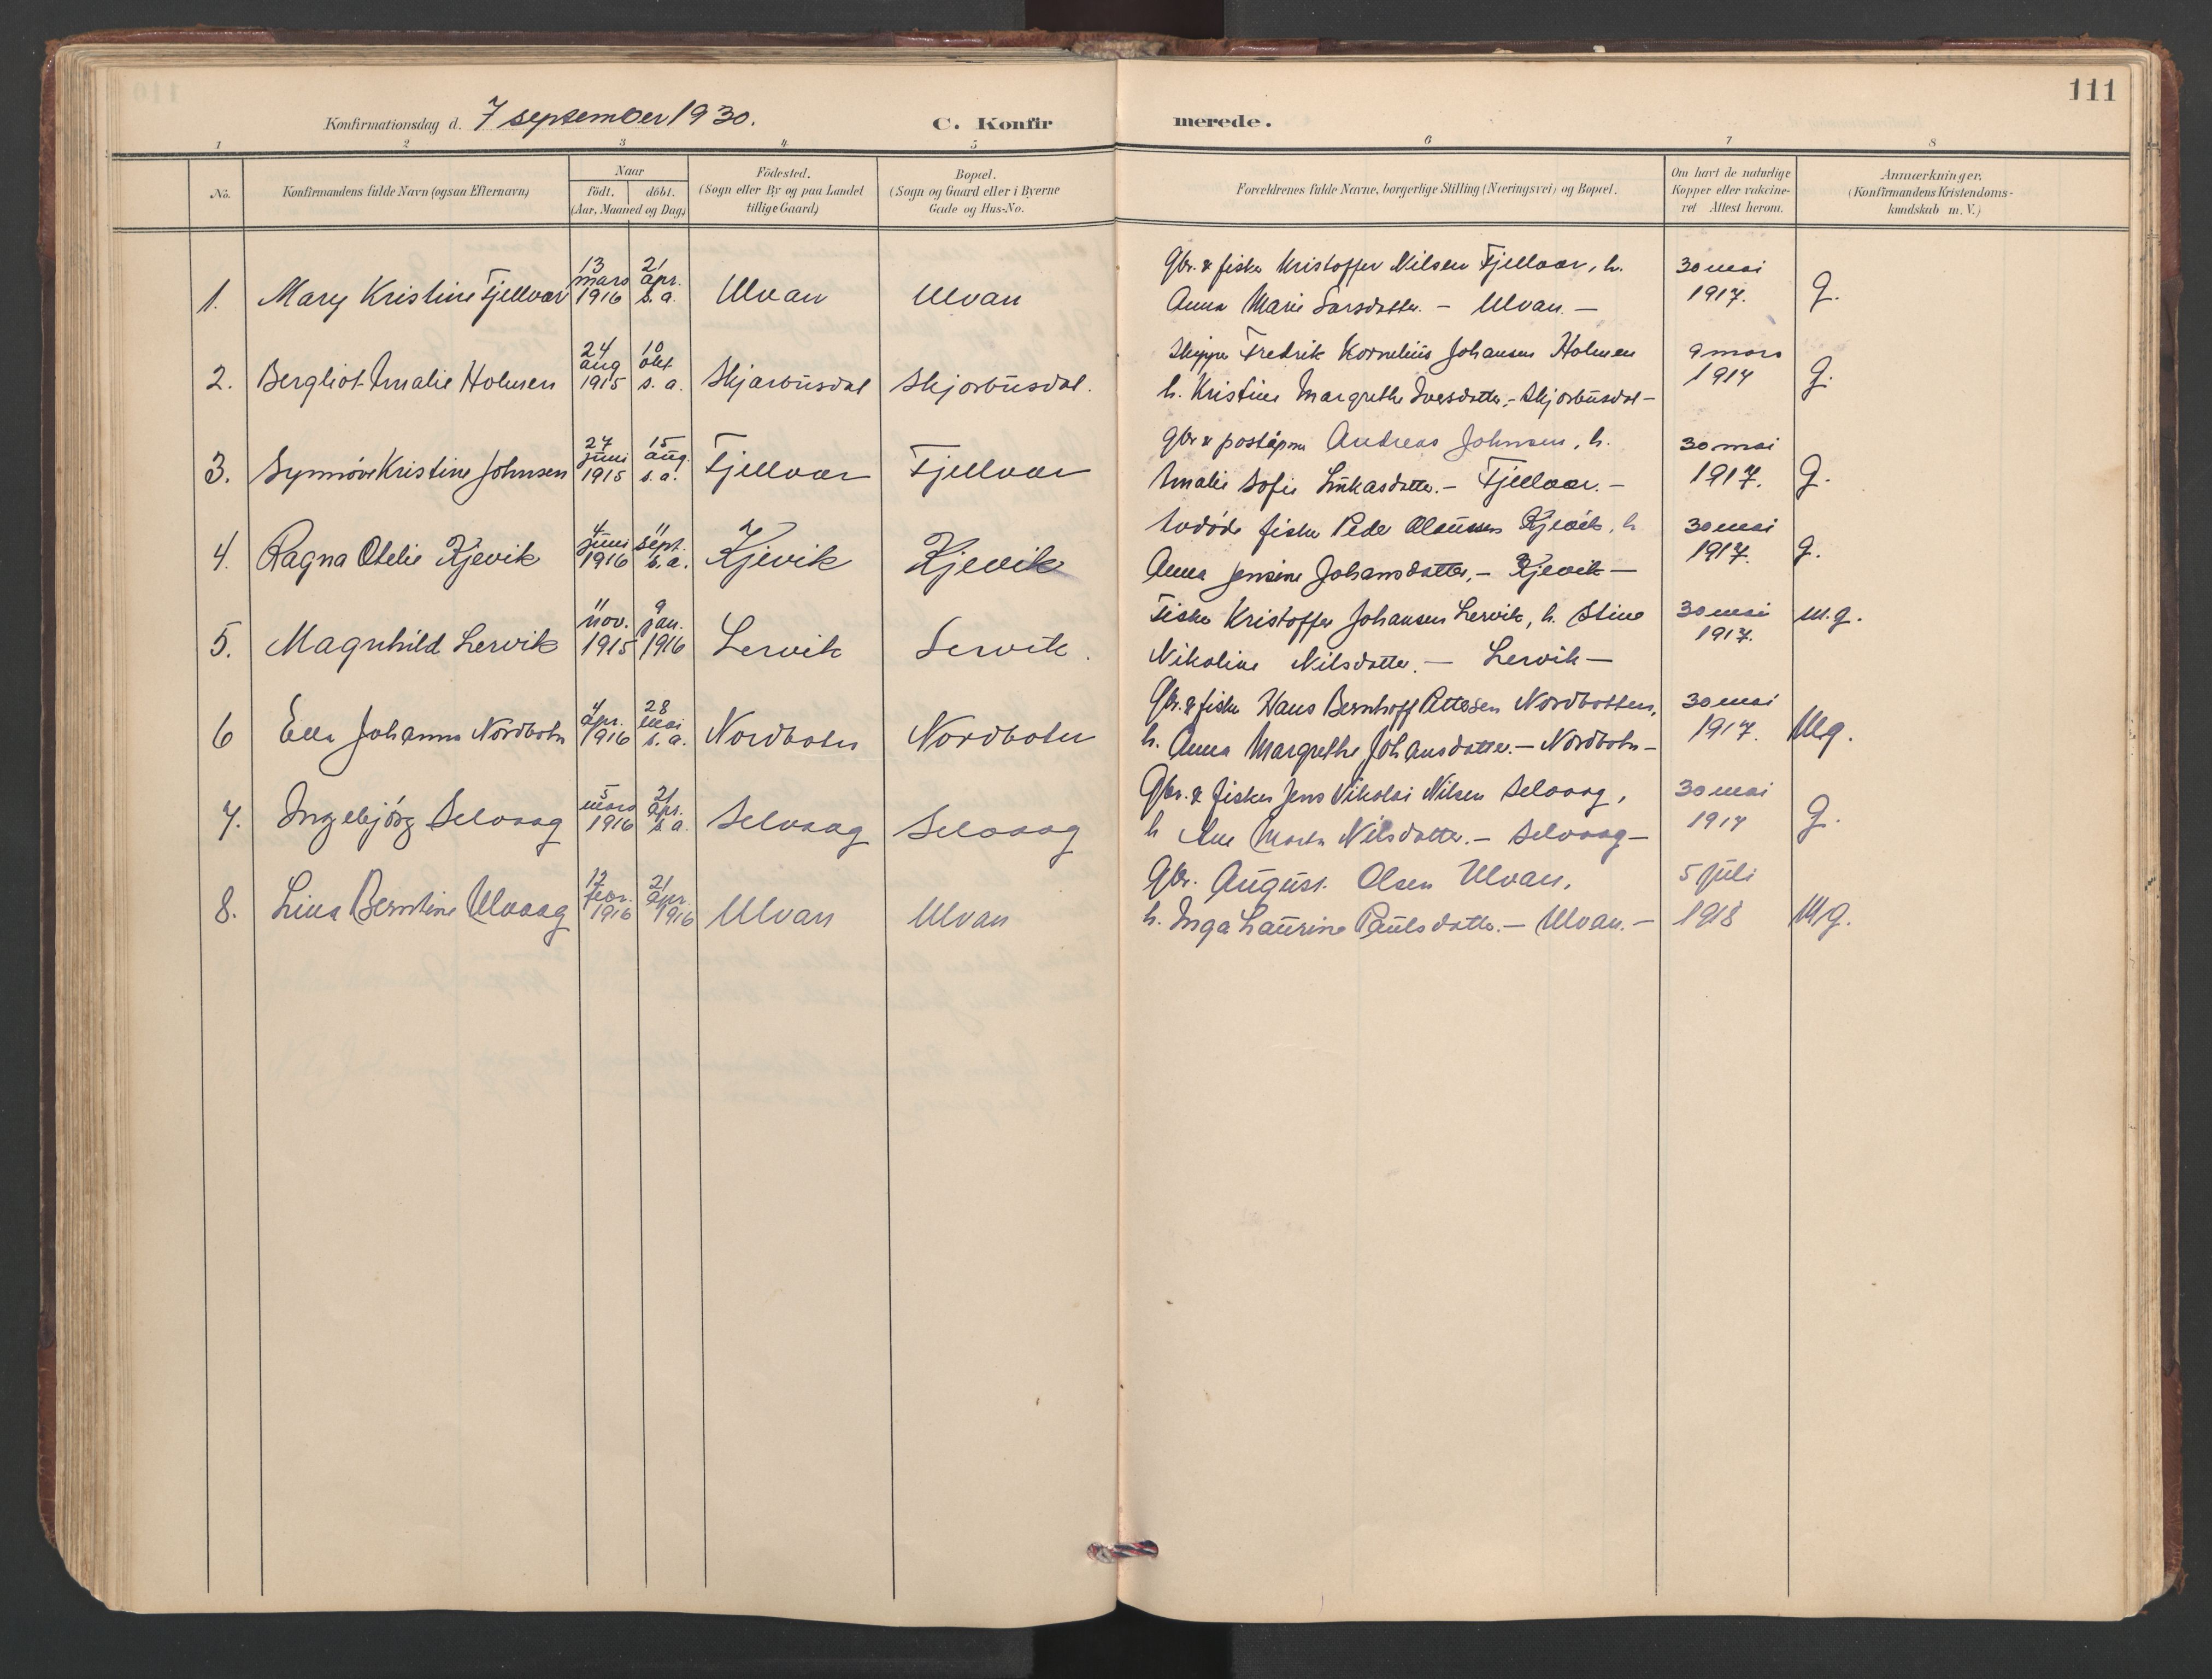 111
Konfirmationsdag d. 7 september 1930.
C. Konfirmerede.
1 2 3 4 5 6 7 8
No.
Konfirmandens fulde Navn (ogsaa Efternavn)
Naar
födt. döbt.
(Aar, Maaned og Dag)
Födested.
(Sogn eller By og paa Landet
tillige Gaard)
Bopæl.
(Sogn og Gaard eller i Byerne
Gade og Hus-No.
Forældrenes fulde Navne, borgerlige Stilling (Næringsvei) og Bopæl.
Om havt de naturlige
Kopper eller vakcine-
ret Attest herom.
Anmærkninger.
(Konfirmandens Kristendoms-
kundskab m. V.)
1. Mary Kristine Fjellvær 13 mars 1916 21 apr. s.a. Ulvan Ulvan
Gbr. & fisker Kristoffer Nilsen Fjellvær, h.
Anna Marie Larsdatter. - Ulvan. -
30 mai 1917. G.
2. Bergliot Amalie Holmen 24 aug 1915 10 okt s.a. Skjærbusdal Skjærbusdal.
Skipper Fredrik Kornelius Johansen Holmen
h. Kristine Margrethe Iversdatter, - Skjærbusdal -
9 mars 1917 G.
3. Synnöve Kristine Johnsen 27 juni 1915 15 aug. s.a. Fjellvær Fjellvær
Gbr & poståpner Andreas Johnsen, h.
Amalie Sofie Lukasdatter. - Fjellvær. -
30 mai 1917. G.
4. Ragna Otelie Kjevik 4 juni 1916 11 sept. s.a. Kjevik Kjevik
fisker Peder Olaussen Kjevik, h
Anna Jensine Johansdatter, - Kjevik -
30 mai 1917. G.
5. Magnhild Lervik 11 nov. 1915 9 jan. 1916 Lervik Lervik.
Fisker Kristoffer Johansen Lervik, h. Stine
Nikoline Nilsdatter. - Lervik -
30 mai 1917. M.g.
6 Ella Johanna Nordbotn 4 apr. 1916 28 mai s.a. Nordbotn Nordbotn
Gbr. & fisker Hans Bernhoff Pettersen Nordbotten,
h. Anna Margrethe Johansdatter. - Nordbotn -
30 mai 1917. Mg.
7. Ingebjörg Selvaag 5 mars 1916 21 apr. s.a. Selvaag Selvaag
Gbr. & fisker Jens Nikolai Nilsen Selvaag,
h Ane Marta Nilsdatter. - Selvaag -
30 mai 1917 G.
8. Lina Berntine Ulvaag 12 febr. 1916 21 apr. 1916 Ulvan Ulvan
Gbr. August Olsen Ulvan,
h. Inga Laurine Paulsdatter. - Ulvan. -
5 juli 1918 Mg.